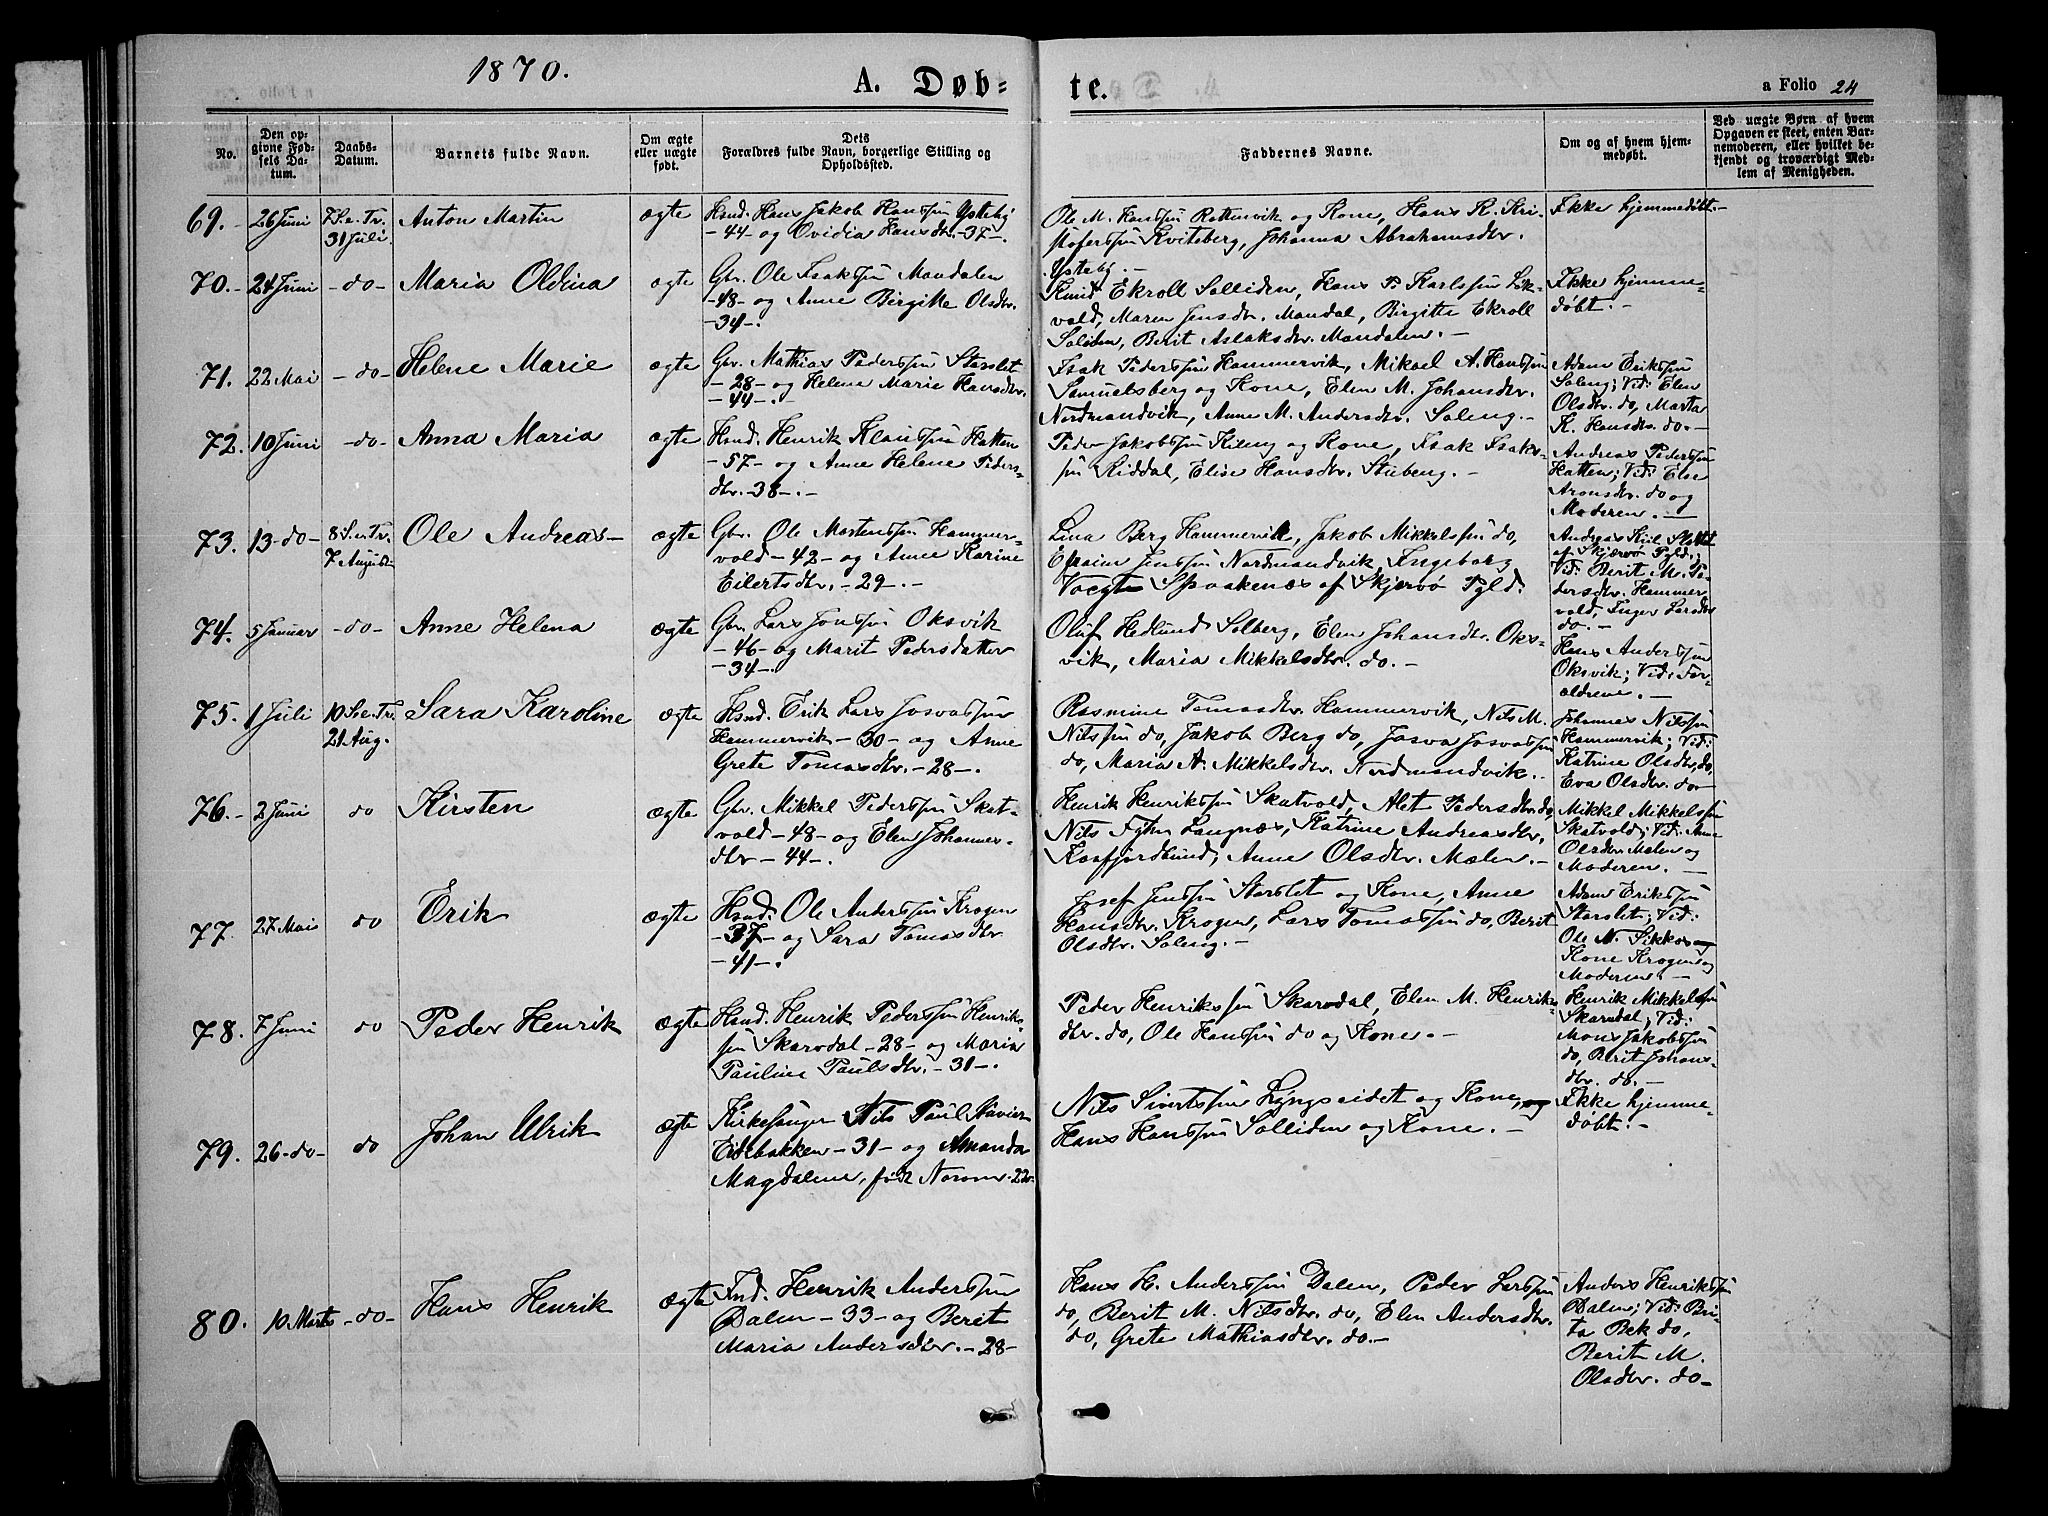 1870.
A. Døb=
te.
a Folio 24
No.
Den op=
givne Fød=
sels Da=
tum.
Daabs=
Datum.
Barnets fulde Navn.
Om ægte
eller uægte
født.
Dets
Forældres fulde Navn, borgerlige Stilling og
Opholdssted.
Faddernes Navne.
Om og af hvem hjem=
medøbt.
Ved uægte Børn af hvem
Opgaven er skeet, enten Bar=
nemoderen, eller hvilket be=
kjendt og troværdigt Med=
lem af Menigheden.
69. 26 Juni
7 S. e. Tr.
31 Juli.
Anton Martin
ægte
Hsnd. Hans Jakob Hanssøn Ysteby
-44- og Ovidia Hansdtr. -37-.
Ole M. Hanssøn Rottenvik og Kone, Hans R. Kri-
stoferssøn Kviteberg, Johanna Abrahamsdtr.
Ysteby.-
Ikke hjemmedøbt.-
70.- 24 Juni
-do-
Maria Oldina
ægte
Gbr. Ole Isakssøn Mandalen
-48- og Anne Birgitte Olsdtr.
-34-.
Knud Ekroll Solliden, Hans P. Karlssøn Lök-
vold, Maren Jensdtr. Mandal, Birgitte Ekroll
Soliden, Berit Aslaksdtr. Mandalen.-
Ikke hjemme-
døbt.-
71. 22 Mai
-do-
Helene Marie
ægte
Gbr. Mathias Pederssøn Storslet
-28- og Helene Marie Hansdtr.
-44-.
Isak Pederssøn Hammervik, Mikael A. Hanssøn
Samuelsberg og Kone, Elen M. Johansdtr.
Nordmandvik, Anne M. Andersdtr. Saleng.-
Adam Erikssøn
Saleng; Vid: Elen
Olsdtr. do, Marta
K. Hansdtr. do.-
72. 10 Juni
-do-
Anna Maria
ægte
Hsnd. Henrik Klaussøn Hatten
-57- og Anne Helene Peders-
dtr. 38-.-
Peder Jakobssøn Kileng og Kone, Isak Isaks-
søn Riddal, Elise Hansdtr. Stubeng.-
Andreas Pederssøn
Hatten; Vid: Else
Aronsdtr. do og
Moderen.-
73. 13-do-
8 S. e. Tr.
7 August
Ole Andreas-
ægte
Gbr. Ole Mortenssøn Hammer-
vold-42- og Anne Karine
Eilertsdtr. -29.-
Lina Berg Hammervik, Jakob Mikkelssøn do,
Efraim Jenssøn Nordmandvik, Ingeborg
Voegt Spaakenæs af Skjervö Pgld.
Andreas Kiil Slettet
af Skjærvö Pgld.;
Vid: Berit M. Pe-
dersdtr. Hammer
vold, Inger Larsdtr
do.-
74. 5 Januar
-do-
Anne Helena
ægte
Gbr. Lars Jonssøn Oksvik
-46- og Marit Pedersdatter
-34-.
Oluf Hedlund Solberg, Elen Johansdtr. Oks-
vik, Maria Mikkelsdtr. do.-
Hans Anderssøn
Oksvik; Vid: For-
ældrene.-
75. 1 Juli
10 S. e. Tr.
21 Aug.
Sara Karoline
ægte
Hsnd. Erik Lars Josvassøn
Hammervik-30- og Anne
Grete Tomasdtr. -28-.
Rasmine Tomasdtr. Hammervik, Nils M.
Nilssøn do, Jakob Berg do, Josva Josvassøn
do, Maria A. Mikkelsdtr. Nordmandvik.-
Johannes Nilssøn
Hammervik; Vid:
Katrine Olsdtr. do,
Eva Olsdtr. do-
76.- 2 Juni
do
Kirsten
ægte
Gbr. Mikkel Pederssøn Skat-
vold-48- og Elen Johannes-
dtr-44-.
Henrik Henrikssøn Skatvold, Alet Pedersdtr. do,
Nils Langnæs, Katrine Andreasdtr.
Kaafjordbund, Anne Olsdtr. Mælen.-
Mikkel Mikkelssøn
Skatvold; Vid: Ane
Olsdtr. Mælen og
Moderen.-
77. 27 Mai
do
Erik
ægte
Hsnd. Ole Anderssøn Krogen
-37- og Sara Tomasdtr
-41-.
Josef Jenssøn Storslet og Kone, Anne
Hansdtr. Krogen, Lars Tomassøn do, Berit
Olsdtr. Saleng.-
Adam Erikssøn
Storslet; Vid:
Ole N. Sikkos og
Kone Krogen og
Moderen.-
78. 7 Juni
do
Peder Henrik
ægte
Hsnd. Henrik Pederssøn Henriks-
søn Skarvdal-28- og Maria
Pauline Paulsdtr. -31-.
Peder Henrikssøn Skarvdal, Elen M. Henriks-
dtr. do, Ole Hanssøn do og Kone.-
Henrik Mikkelssøn
Skarvdal; Vid:
Mons Jakobssøn
do, Berit Johans-
dtr. do.-
79. 26-do-
do
Johan Ulrik
ægte
Kirkesanger Nils Paul Xavier
Eidebakken-31- og Amanda
Magdalene, født Norum-22-
Nils Sivertssøn Lyngseidet og Kone, og
Hans Hanssøn Solliden og Kone.-
Ikke hjemme-
døbt.-
80. 10 Marts
-do-
Hans Henrik
ægte
Ind. Henrik Anderssøn
Dalen-33- og Berit
Maria Andersdtr. -28-
Hans H. Anderssøn Dalen, Peder Larssøn
do, Berit M. Nilsdtr. do, Elen Andersdtr.
do, Grete Mathiasdtr. do-
Anders Henrikssøn
Dalen; Vid: Bri-
ta Bek do,
Berit M.
Olsdtr. do-